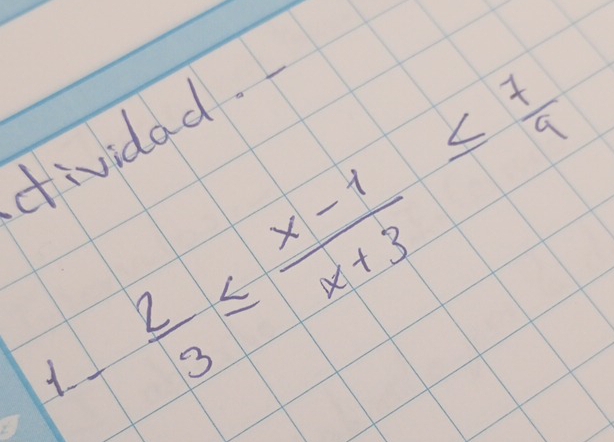 ctividad.-
1- 2/3 ≤ (x-1)/(x+3) ≤ 7/9